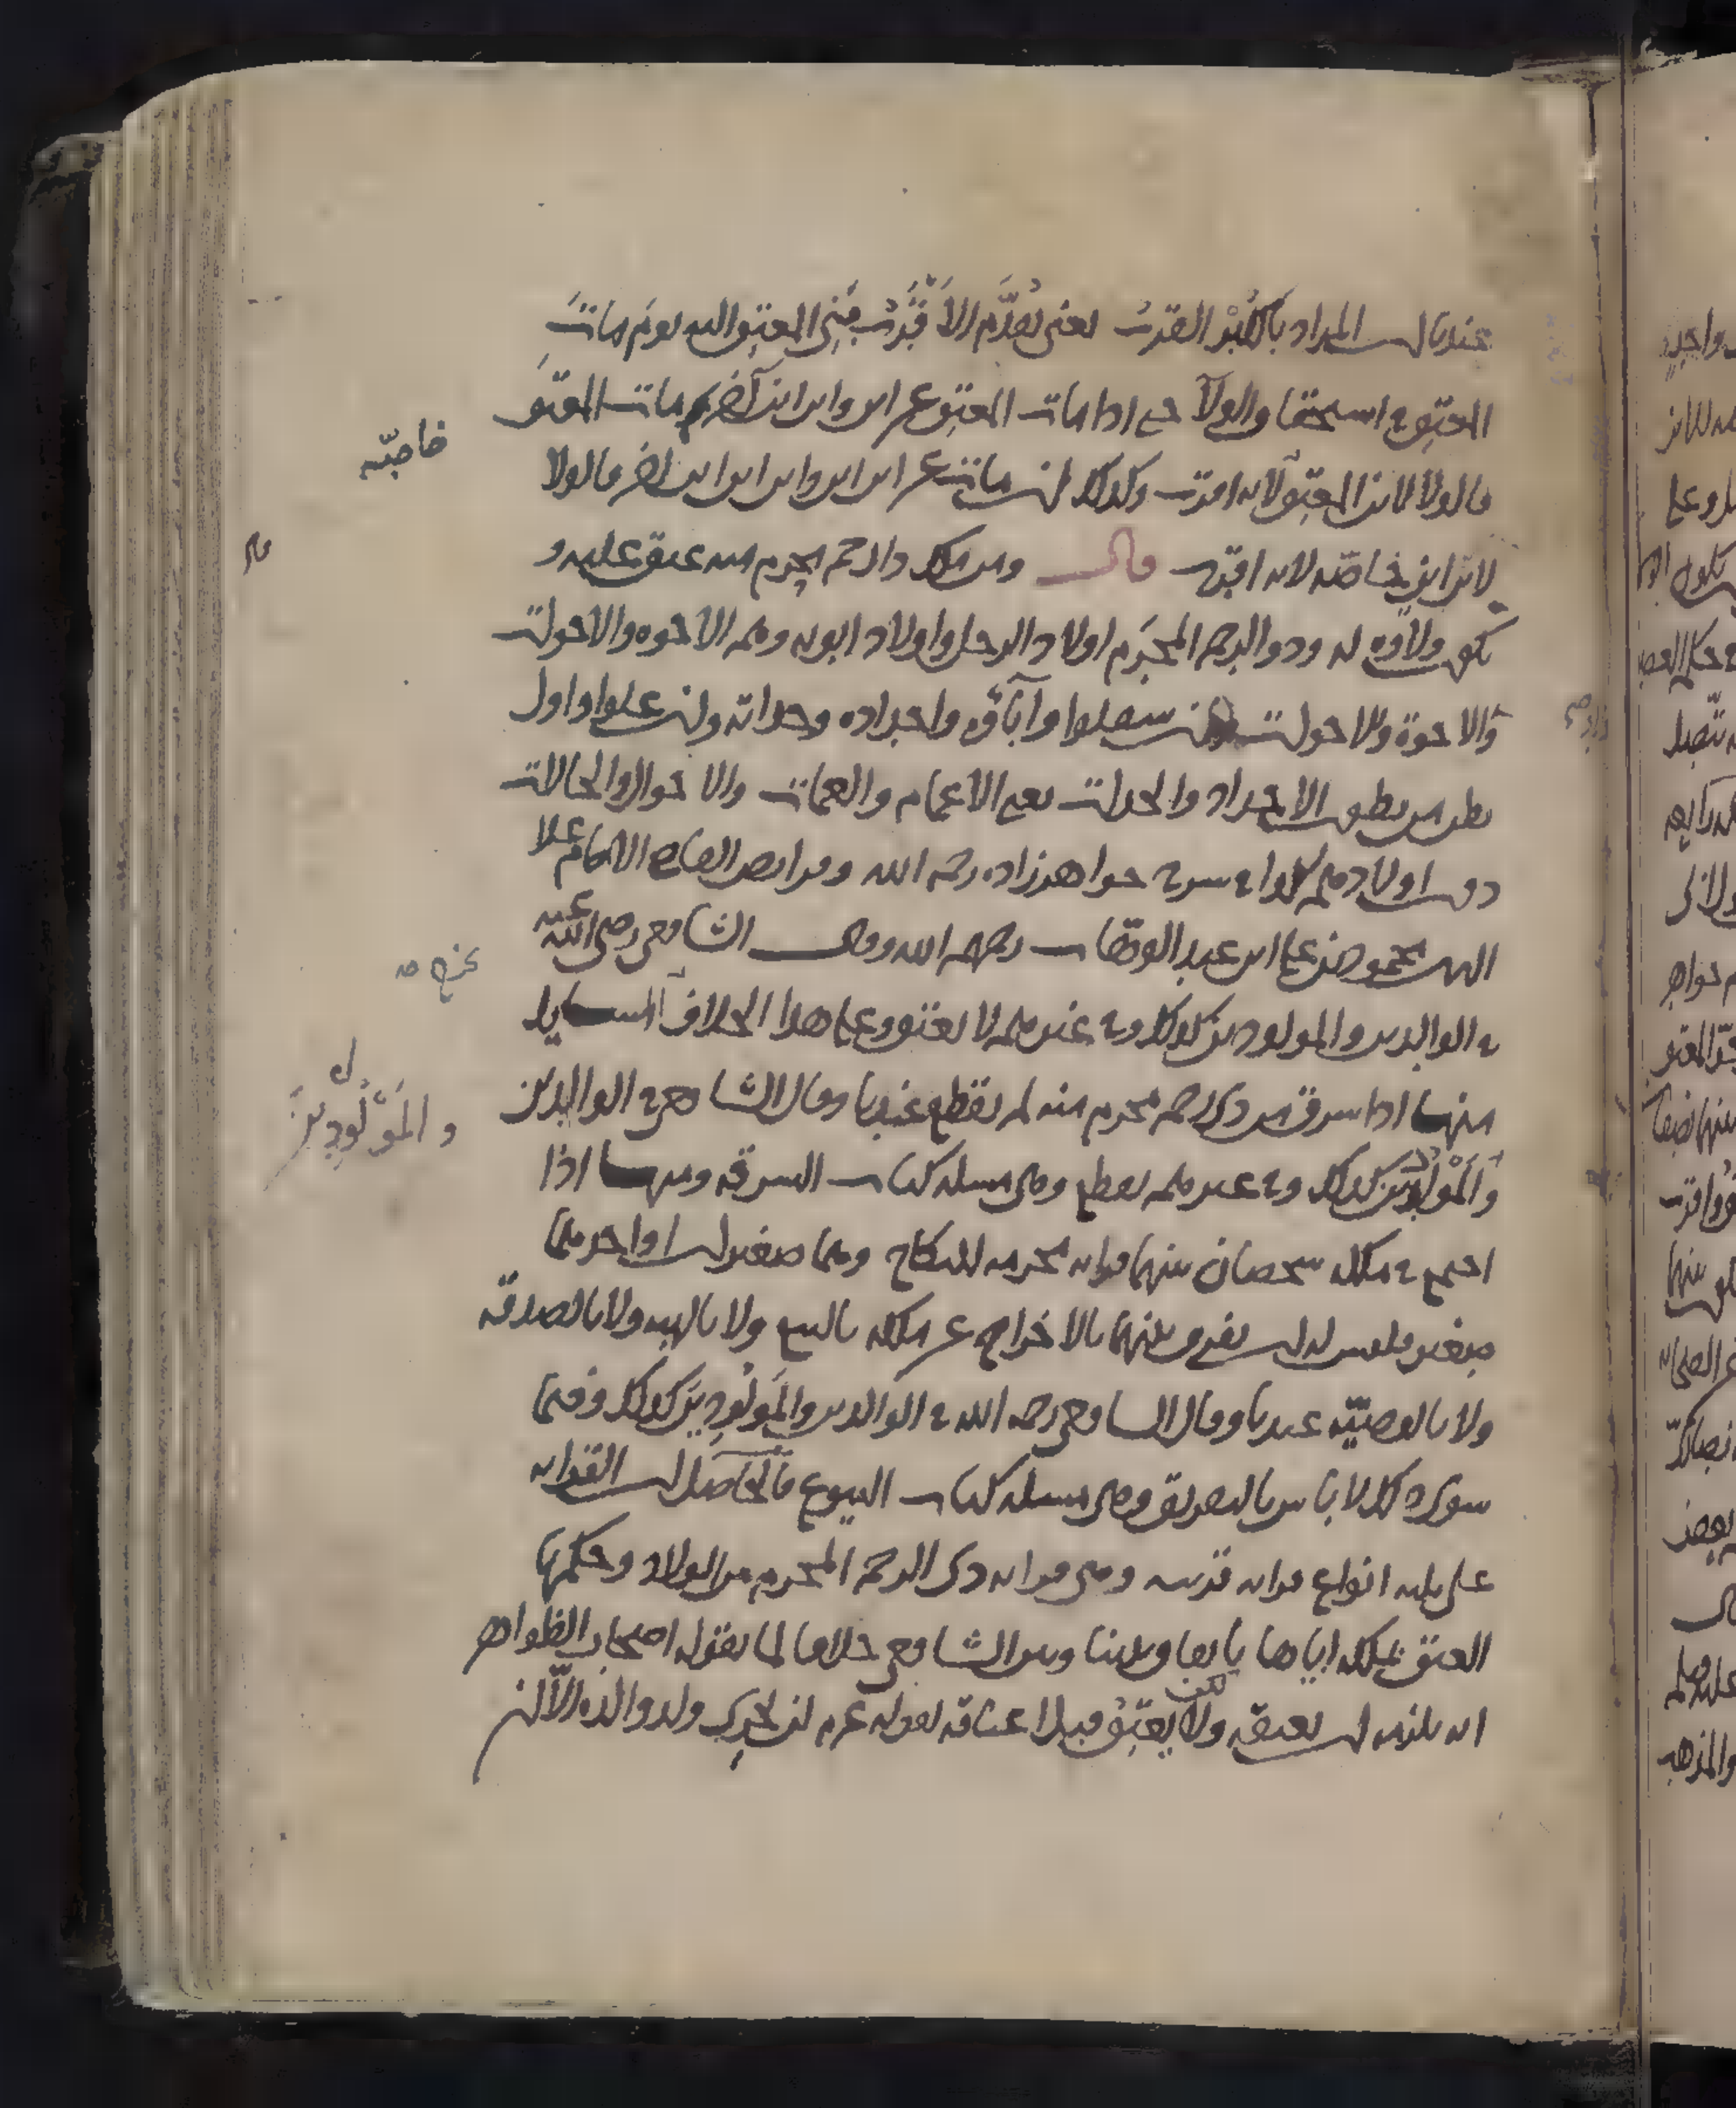 عندنا ان المراد بالكُبْر القرب يعنى يُقدَّم الاَقْرَبُ مِن المعتِق اليه يوم ماتَ
المعتِق في استحقاق الولآ حتى اذا مات المعتِق عن ابن وابن ابن آخر ثم مات المعتَق
فالولا لابن المعتِق لانه اقرب وكذلك ان مات عن ابن ابن وابن ابن ابن اخر فالولا
لابن ابنٍ خاصّه لانه اقرب قال ومن ملك ذا رحم محرم منه عتق عليه و
يكون ولاوه له وذو الرحم المحرَم اولاد الرجل واولاد ابويه وهم الاخوه والاخوات
والاخوة والاخوات وان سفلوا وآباؤه واجداده وجداته وان علوا واول
بطن من بطون الاجداد والجدات يعنى الاعمام والعمات والاخوال والخالات
دون اولادهم كذا في شرح خواهرزاده رحمه الله وفرايض القاضى الامام علا
الدين محمود بن على ابن عبد الوهاب رحمهم الله وقال الشافعى رضى الله عنه
في الوالدين والمولودين كذلك وفي غيرهم لا يعتق وعلى هذا الخلاف المسايل
منها اذا سرق من ذى رحم محرم منه لم يقطع عندنا وقال الشافعى في الوالدين
والمَوْلُودِين كذلك وفي غيرهم يقطع وهى مسله كتاب السرقه ومنها اذا
اجتمع في ملكه شخصان بينهما قرابه محرمه للنكاح وهما صغيران او احدهما
صغير فليس له ان يفرق بينهما بالاخراج عن ملكه بالبيع ولا بالهبه ولا بالصدقه
ولا بالوصيّه عندنا وقال الشافعى رحمه الله في الوالدين والمَولُودِينَ كذلك وفيما
سوى ذلك لا باس بالتفريق وهى مسله كتاب البيوع فالحاصل ان القرابه
على ثلثه انواع قرابه قريبه وهى قرابه ذى الرحم المحرم من الولاد وحكمها
العتق بملكه اياها باتفاق بيننا وبين الشافعى خلافا لما يقوله اصحاب الظواهر
انه يلزمه ان يعتقه ولكن لا يعتِق قبل اعتاقه لقوله عم لن يجزِى ولد والده الّا ان
خاصّه
قال
والمَوْلُودِينَ